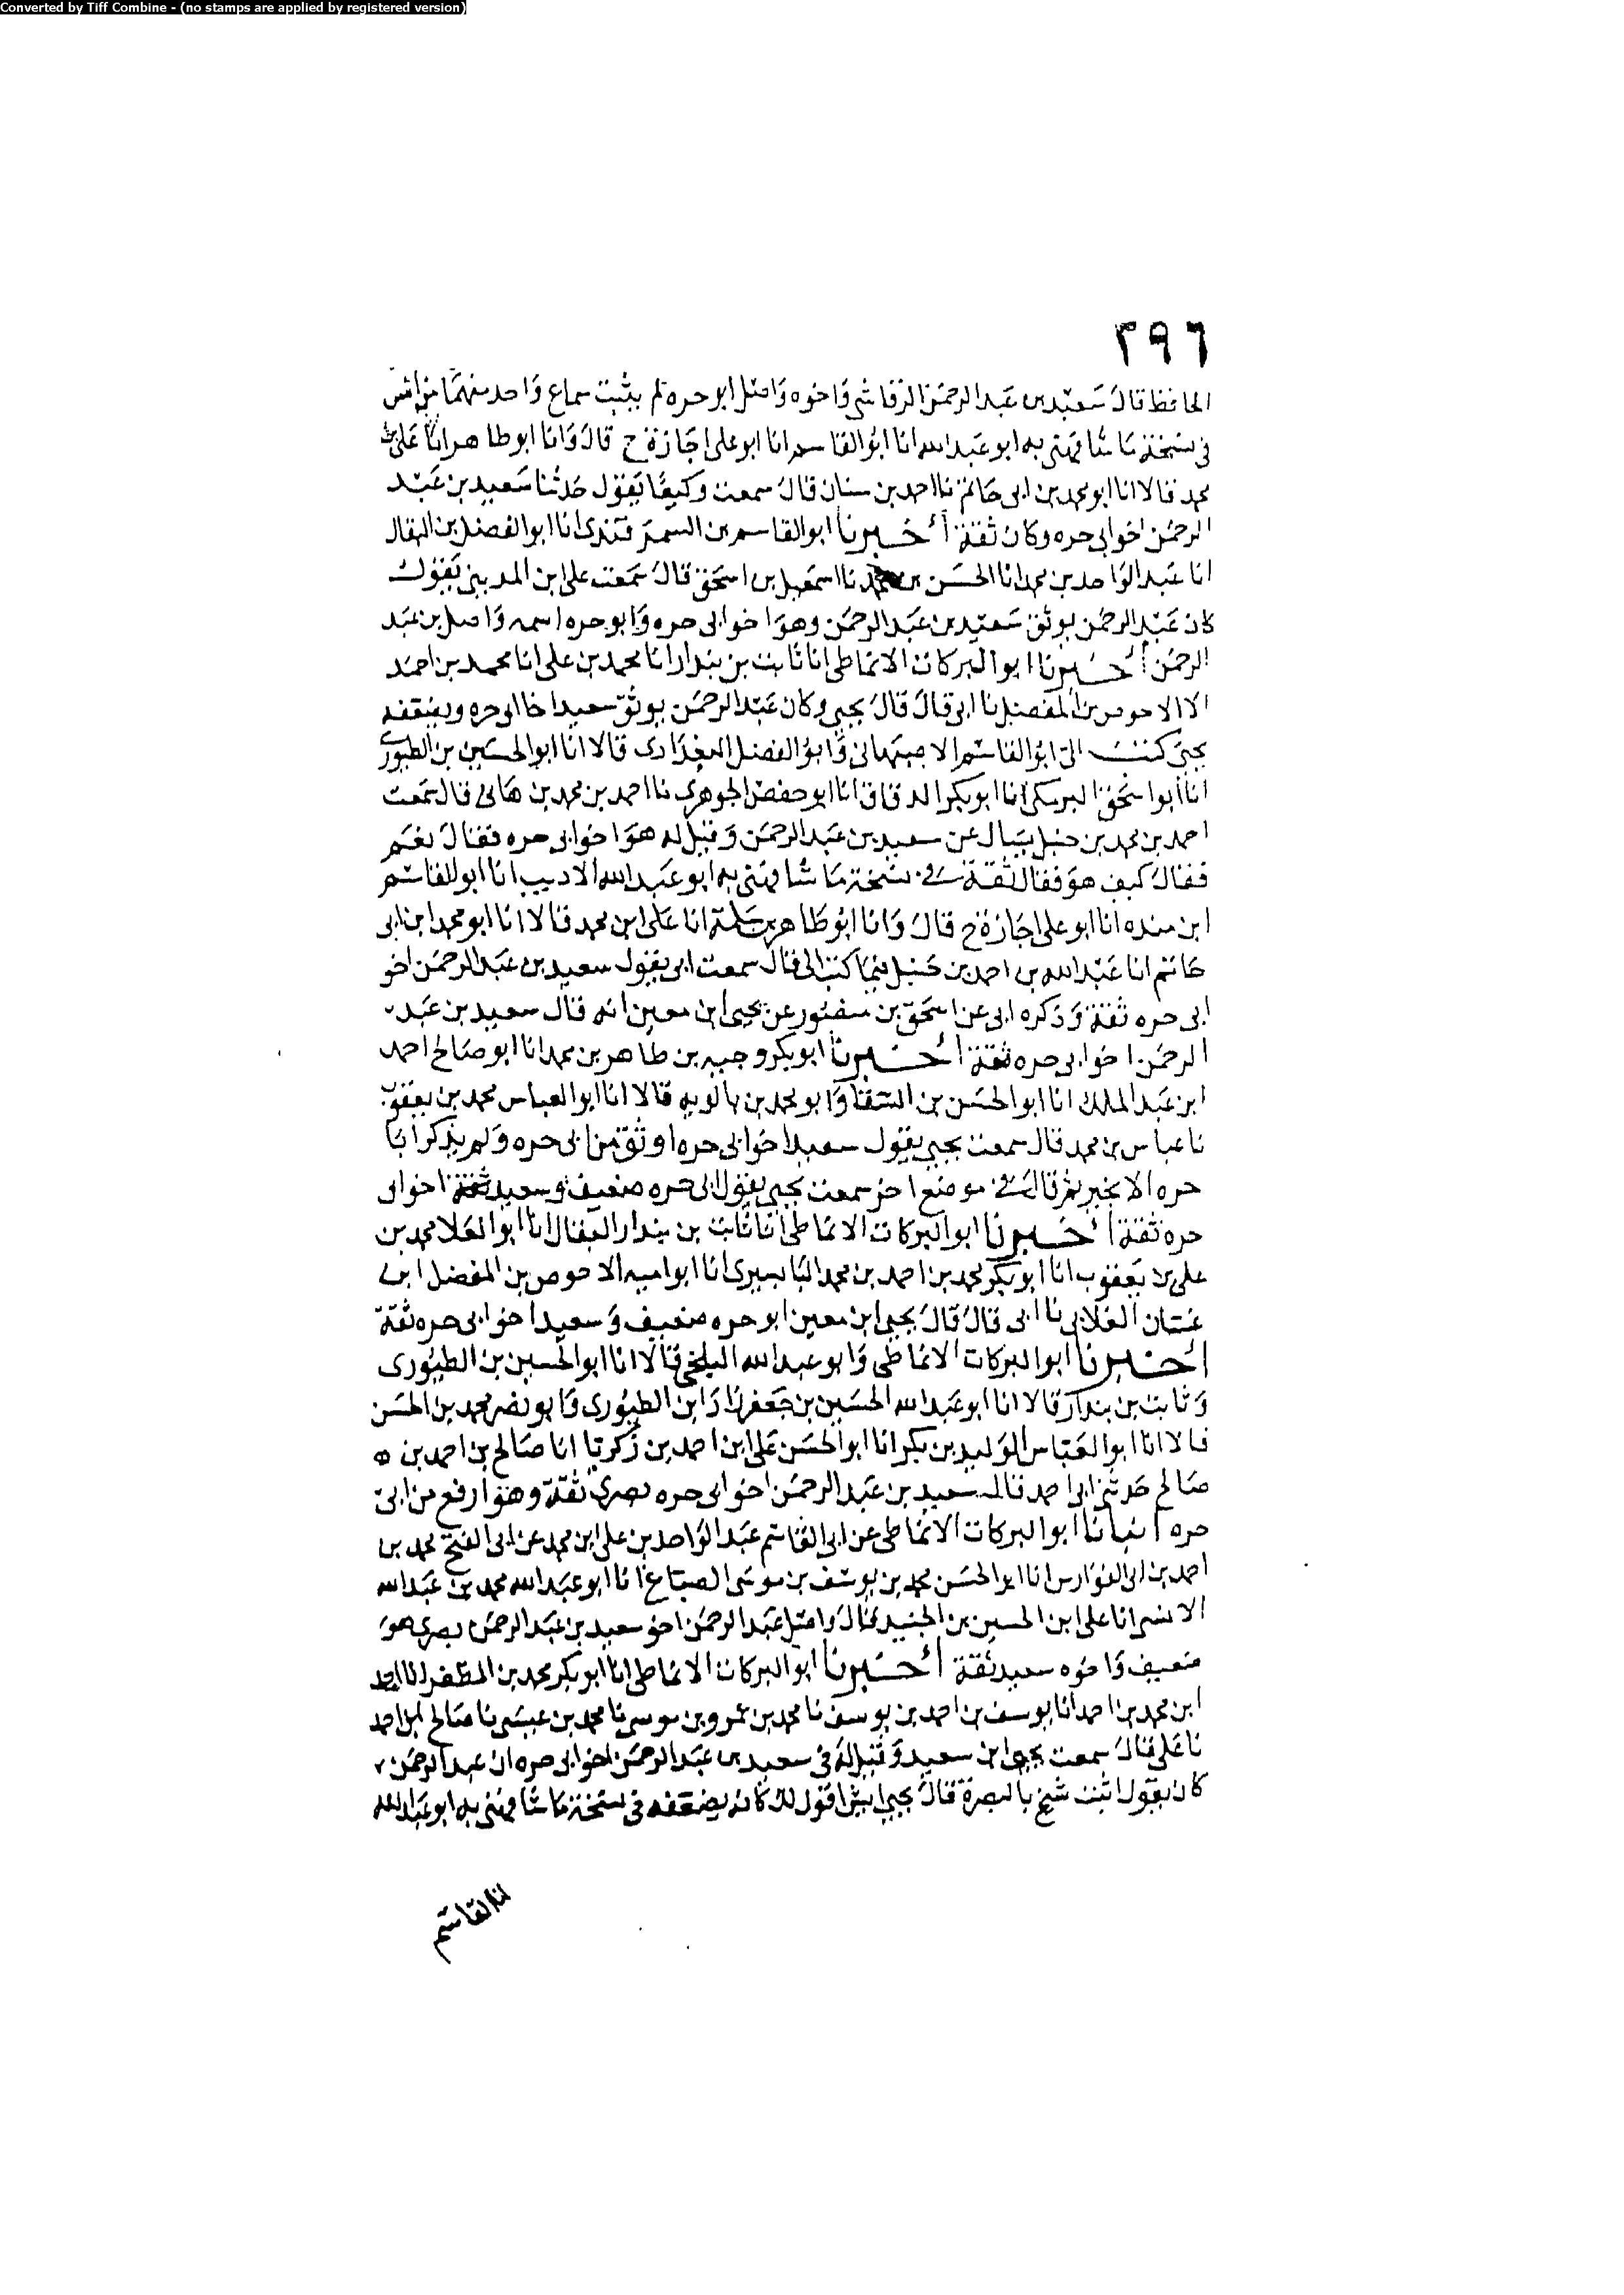 Converted by Tiff Combine - (no stamps are applied by registered version)
٣٩٦
الحافظ قال سعيد بن عبد الرحمن الرقاشي واخوه واصل ابو حره لم يثبت سماع واحد منهما من انس
في نسخة ما شافهني به ابو عبد الله انا ابو القاسم انا ابو علي اجازة ح قال وانا ابو طاهر انا علي بن
محمد قالا انا ابو محمد بن ابي حاتم نا احمد بن سنان قال سمعت وكيعا يقول حدثنا سعيد بن عبد
الرحمن اخو ابي حره وكان ثقة أخبرنا ابو القاسم بن السمرقندي انا ابو الفضل بن البقال
انا عبد الواحد بن محمد انا الحسن بن محمد نا اسمعيل بن اسحق قال سمعت علي ابن المديني يقول
كان عبد الرحمن يوثق سعيد بن عبد الرحمن وهو اخو ابي حره وابو حره اسمه واصل بن عبد
الرحمن أخبرنا ابو البركات الانماطي انا ثابت بن بندار انا محمد بن علي انا محمد بن احمد
الاحوص بن المفضل نا ابي قال قال يحيى وكان عبد الرحمن يوثق سعيدا اخا ابي حره ويضعفه
يحيى كتبت الى ابو القاسم الاصبهاني وابو الفضل البغدادي قالا انا ابو الحسين بن الطيوري
انا ابو اسحق البرمكي انا ابو بكر الدقاق انا ابو حفص الجوهري نا احمد بن محمد بن هاني قال سمعت
احمد بن محمد بن حنبل يسال عن سعيد بن عبد الرحمن وقيل له هو اخو ابي حره فقال نعم
فقال كيف هو فقال ثقة في نسخة ما شافهني به ابو عبد الله الاديب انا ابو القاسم
ابن منده انا ابو علي اجازة ح قال وانا ابو طاهر بن سلمة انا علي ابن محمد قالا انا ابو محمد ابن ابي
حاتم انا عبد الله بن احمد بن حنبل فيما كتب الي قال سمعت ابي يقول سعيد بن عبد الرحمن اخو
ابي حره ثقة وذكره ابي عن اسحق بن منصور عن يحيى ابن معين انه قال سعيد بن عبد
الرحمن اخو ابي حره ثقة أخبرنا ابو بكر وجيه بن طاهر بن محمد انا ابو صالح احمد
ابن عبد الملك انا ابو الحسن بن السقا وابو محمد بن بالويه قالا انا ابو العباس محمد بن يعقوب
نا عباس بن محمد قال سمعت يحيى يقول سعيد اخو ابي حره اوثق من ابي حره ولم يذكر ابا
حره الا بخير ثم قال في موضع اخر سمعت يحيى يقول ابي حره ضعيف وسعيد ثقة اخو ابي
حره ثقة أخبرنا ابو البركات الانماطي انا ثابت بن بندار البقال انا ابو العلا محمد بن
علي بن يعقوب انا ابو بكر محمد بن احمد بن محمد البابسيري انا ابو اميه الاحوص بن المفضل ابن
غسان الغلابي نا ابي قال قال يحيى ابن معين ابو حره ضعيف وسعيد اخو ابي حره ثقة
أخبرنا ابو البركات الانماطي وابو عبد الله البلخي قالا انا ابو الحسين بن الطيوري
وثابت بن بندار قالا انا ابو عبد الله الحسين بن جعفر زاد ابن الطيوري وابو نصر محمد بن الحسن
قالا انا ابو العباس الوليد بن بكر انا ابو الحسن علي ابن احمد بن زكريا انا صالح بن احمد بن ه
صالح حدثني ابي احمد قال سعيد بن عبد الرحمن اخو ابي حره بصري ثقة وهو ارفع من ابي
حره أنبانا ابو البركات الانماطي عن ابي القاسم عبد الواحد بن علي ابن محمد عن ابي الفتح محمد بن
احمد بن ابي الفوارس انا ابو الحسن محمد بن يوسف بن موسى الصباغ انا ابو عبد الله محمد بن عبد الله
انا علي ابن الحسين بن الجنيد قال واصل عبد الرحمن اخو سعيد بن عبد الرحمن بصري هو
ضعيف واخوه سعيد ثقة أخبرنا ابو البركات الانماطي انا ابو بكر محمد بن المظفر انا احمد
ابن محمد بن احمد انا يوسف بن احمد بن يوسف نا محمد بن عمرو بن موسى نا محمد بن عيسى نا صالح ابن احمد
نا علي قال سمعت يحيى ابن سعيد وقيل له في سعيد بن عبد الرحمن اخو ابي حره ان عبد الرحمن
كان يقول اثبت شيخ بالبصرة قال يحيى ايش اقول لك كانه يضعفه في نسخة ما شافهني به ابو عبد الله
انا القاسم